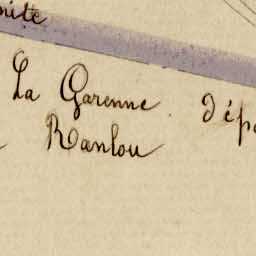 nité
La Garenne. dép
Ranlou